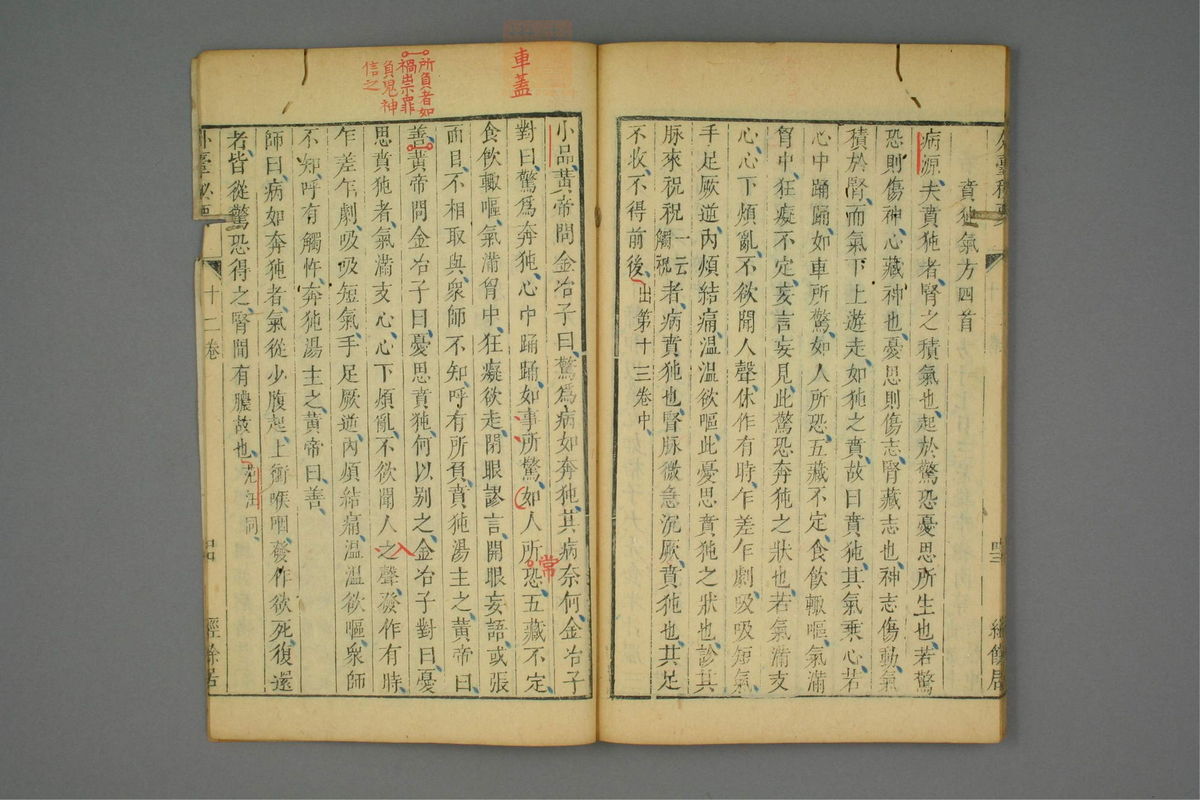 賁㹠氣方四首
病源、夫賁㹠者腎之積氣也、起於驚恐憂思所生也、若驚
恐則傷神、心藏神也、憂思則傷志、腎藏志也、神志傷動、氣
積於腎、而氣下上遊走、如㹠之賁、故曰賁㹠、其氣乘心、若
心中踊踊、如車所驚、如人所恐、五藏不定、食飲輙嘔、氣滿
胷中、狂癡不定、妄言妄見、此驚恐奔㹠之狀也、若氣滿支
心、心下煩亂、不欲聞人聲、休作有時、乍差乍劇、吸吸短氣、
手足厥逆、內煩結痛、温温欲嘔、此憂思賁㹠之狀也、診其
脉來祝祝一云觸祝者、病賁㹠也、腎脉微急、沉厥、賁㹠也、其足
不收、不得前後、出第十三卷中、
車蓋
所負者如
禍祟罪
負鬼神
信之
小品、黃帝問金冶子曰、驚爲病如奔㹠、其病奈何、金冶子
對曰、驚爲奔㹠、心中踊踊、如事所驚、如人所恐、五藏不定、
食飲輙嘔、氣滿胷中、狂癡欲走、閉眼謬言、開眼妄語、或張
面目、不相取與、衆師不知、呼有所負、賁㹠湯主之、黃帝曰
善、黃帝問金冶子曰、憂思賁㹠、何以别之、金冶子對曰、憂
思賁㹠者、氣滿支心、心下煩亂、不欲聞人之聲、發作有時、
乍差乍劇、吸吸短氣、手足厥逆、內煩結痛、温温欲嘔、衆師
不知、呼有觸忤、奔㹠湯主之、黃帝曰、善、
師曰、病如奔㹠者、氣從少腹起、上衝喉咽、發作欲死、復還
者、皆從驚恐得之、腎間有膿故也、范汪同、
常
十二卷
經餘居